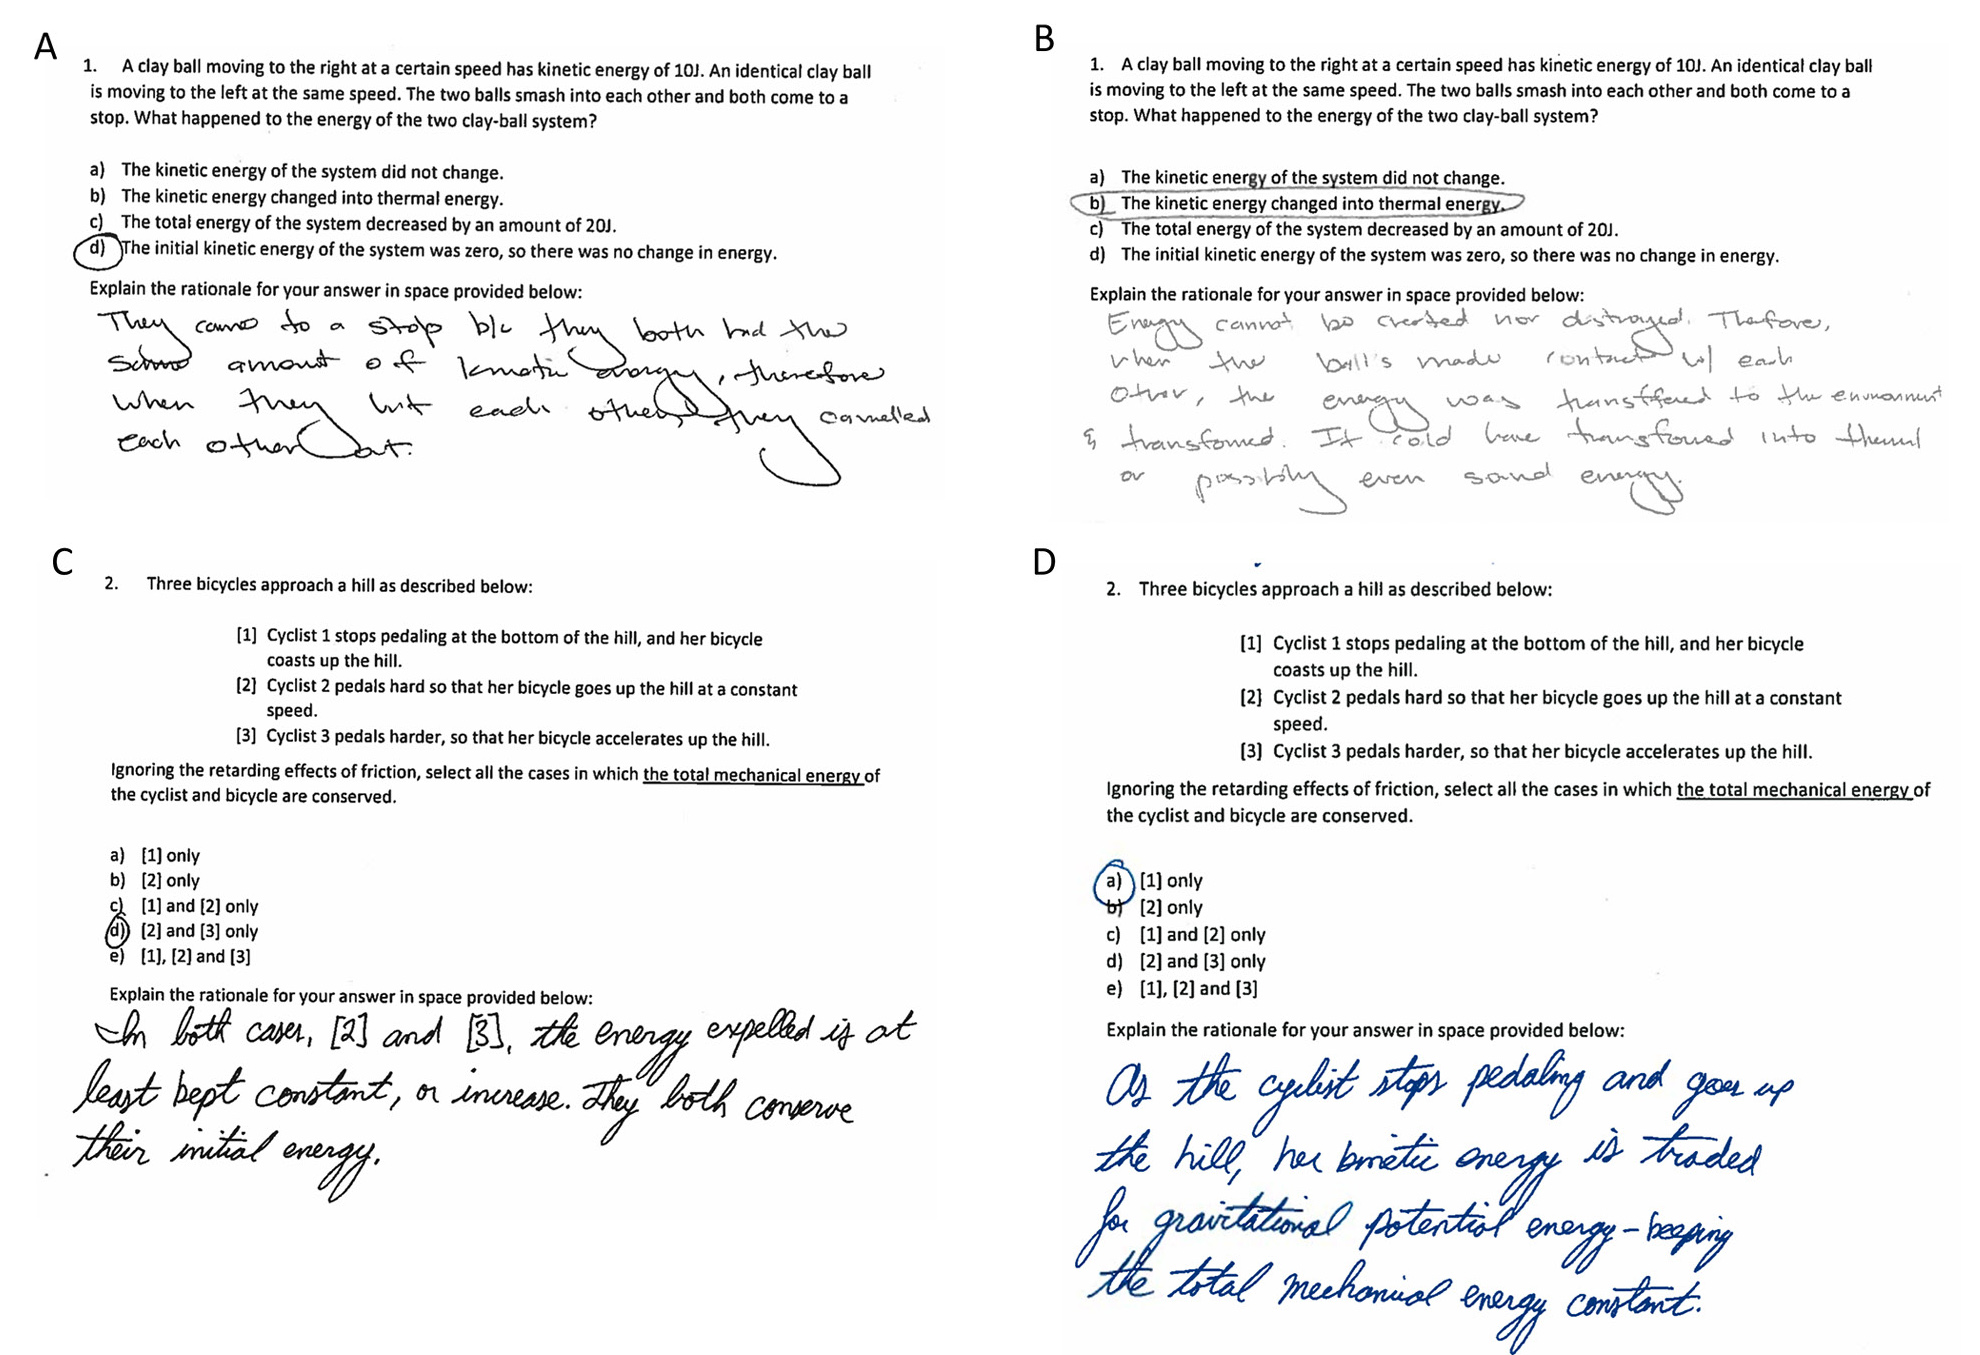 A
1. A clay ball moving to the right at a certain speed has kinetic energy of 10J. An identical clay ball
is moving to the left at the same speed. The two balls smash into each other and both come to a
stop. What happened to the energy of the two clay-ball system?
a) The kinetic energy of the system did not change.
b) The kinetic energy changed into thermal energy.
c) The total energy of the system decreased by an amount of 20J.
d) The initial kinetic energy of the system was zero, so there was no change in energy.
Explain the rationale for your answer in space provided below:
They came to a stop b/c they both had the
same amount of kinetic energy, therefore
when they hit each other, they cancelled
each other out.
B
1. A clay ball moving to the right at a certain speed has kinetic energy of 10J. An identical clay ball
is moving to the left at the same speed. The two balls smash into each other and both come to a
stop. What happened to the energy of the two clay-ball system?
a) The kinetic energy of the system did not change.
b) The kinetic energy changed into thermal energy.
c) The total energy of the system decreased by an amount of 20J.
d) The initial kinetic energy of the system was zero, so there was no change in energy.
Explain the rationale for your answer in space provided below:
Energy cannot be created nor distroyed. Therefore,
when the ball's made contact w/ each
other, the energy was transffered to the environment
& transfomed. It cold have transfoued into themal
or possibly even sound energy.
C
2. Three bicycles approach a hill as described below:
[1] Cyclist 1 stops pedaling at the bottom of the hill, and her bicycle
coasts up the hill.
[2] Cyclist 2 pedals hard so that her bicycle goes up the hill at a constant
speed.
[3] Cyclist 3 pedals harder, so that her bicycle accelerates up the hill.
Ignoring the retarding effects of friction, select all the cases in which the total mechanical energy of
the cyclist and bicycle are conserved.
a) [1] only
b) [2] only
c) [1] and [2] only
d) [2] and [3] only
e) [1], [2] and [3]
Explain the rationale for your answer in space provided below:
In both cases, [2] and [3], the energy expelled is at
least kept constant, or increase. They both conserve
their initial energy.
D
2. Three bicycles approach a hill as described below:
[1] Cyclist 1 stops pedaling at the bottom of the hill, and her bicycle
coasts up the hill.
[2] Cyclist 2 pedals hard so that her bicycle goes up the hill at a constant
speed.
[3] Cyclist 3 pedals harder, so that her bicycle accelerates up the hill.
Ignoring the retarding effects of friction, select all the cases in which the total mechanical energy of
the cyclist and bicycle are conserved.
a) [1] only
b) [2] only
c) [1] and [2] only
d) [2] and [3] only
e) [1], [2] and [3]
Explain the rationale for your answer in space provided below:
As the cyclist stops pedaling and goes up
the hill, her kinetic energy is traded
for gravitational potential energy - keeping
the total mechanical energy constant.